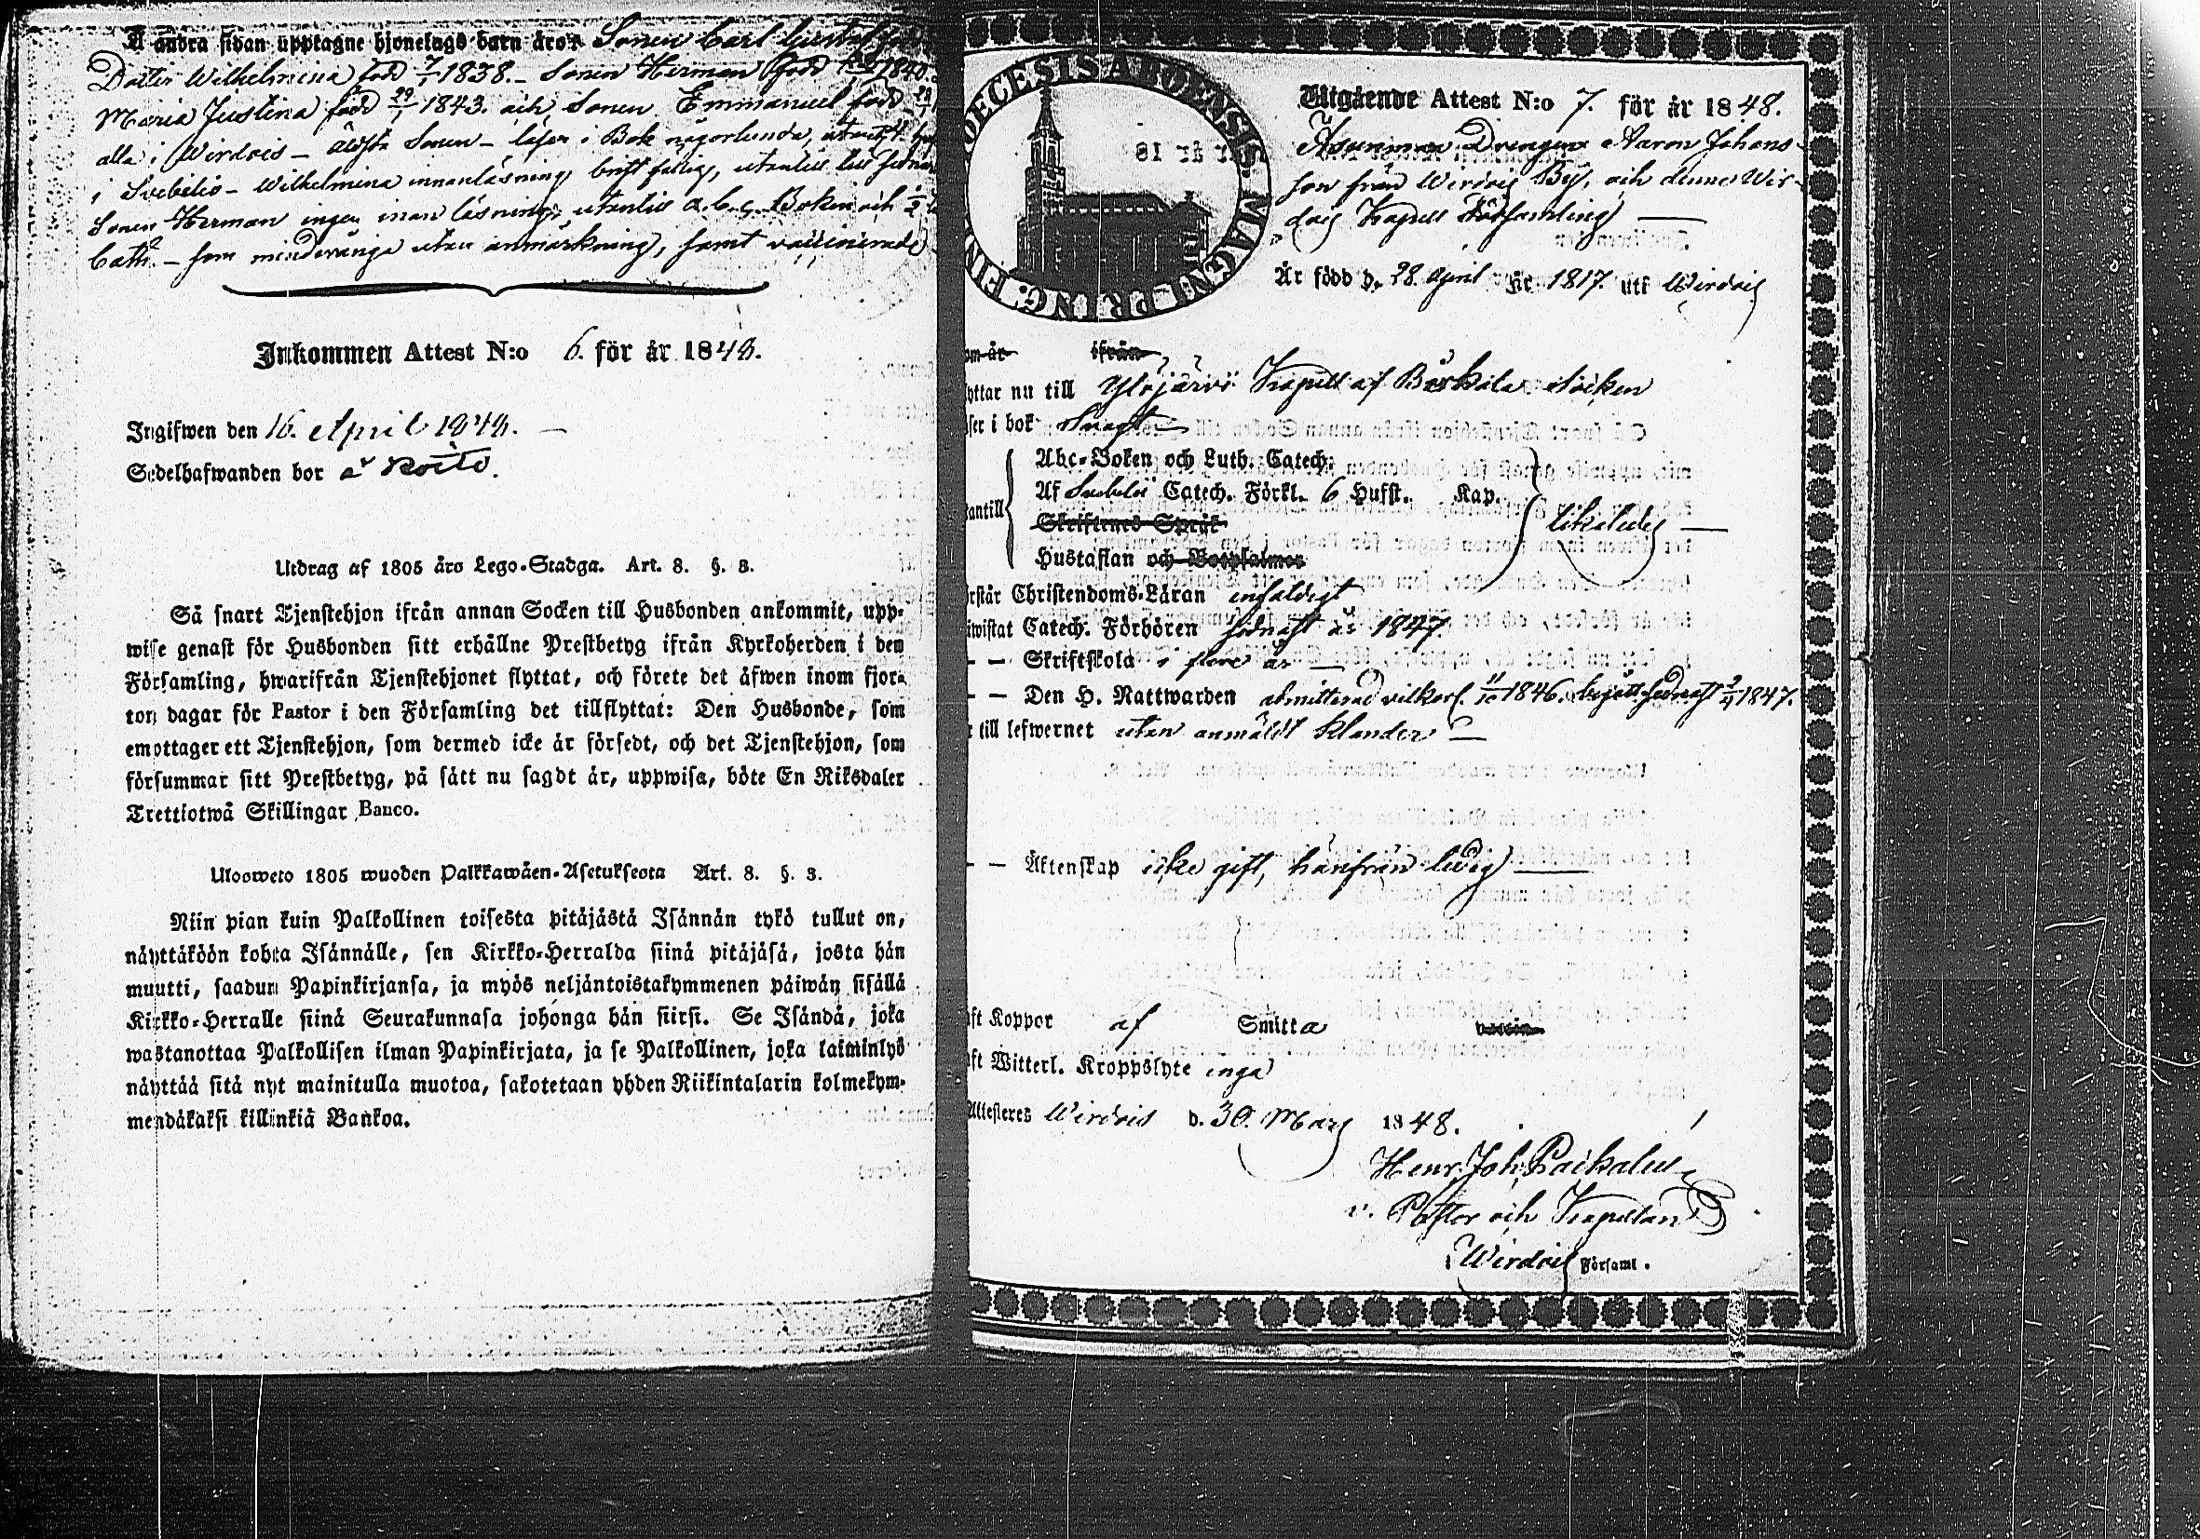 å andra sidan upptagne hjonelags barn äro: Sonen Carl Gustaf
Dotter Wilhelmina född 7/1 1838. – Sonen Herman född 1840.
Maria Justina född 29/1 1843. och Sonen Emmanuel född
alla i Wirdois – äldsta Sonen – läser i Bok någorlunda, utantill
i Svebelii – Wilhelmina innanläsning bristfällig, utantill
Sonen Herman ingen inan läsning, utantill a.b.c. Boken och ½
Cath. – som minderåriga utan anmärkning, samt vaccinerade
Inkommen Attest N:o 6. för år 1848.
Ingifwen den 16. April 1848. –
Sedelhafwanden bor å Roito.
Utdrag af 1805 års Lego-Stadga. Art. 8. §. 3.
Så snart Tjenstehjon ifrån annan Socken till Husbonden ankommit, upp-
wise genast för Husbonden sitt erhållne Prestbetyg ifrån Kyrkoherden i den
Församling, hwarifrån Tjenstehjonet flyttat, och förete det äfwen inom fjor-
ton dagar för Pastor i den Församling det tillflyttat: Den Husbonde, som
emottager ett Tjenstehjon, som dermed icke är försedt, och det Tjenstehjon, som
försummar sitt Prestbetyg, på sätt nu sagdt är, uppwisa, böte En Riksdaler
Trettiotwå Skillingar Banco.
Uloosweto 1805 wuoden Palkkawäen-Asetuksesta Art. 8. §. 3.
Niin pian kuin Palkollinen toisesta pitäjästä Isännän tykö tullut on,
näyttäköön kohta Isännälle, sen Kirkko-Herralda siinä pitäjäsä, josta hän
muutti, saadun Papinkirjansa, ja myös neljäntoistakymmenen päiwän sisällä
Kirkko-Herralle siinä Seurakunnasa johonga hän siirsi. Se Isändä, joka
wastanottaa Palkollisen ilman Papinkirjata, ja se Palkollinen, joka laiminlyö
näyttää sitä nyt mainitulla muotoa, sakotetaan yhden Riikintalarin kolmekym-
mendäkaksi killinkiä Bankoa.
DIOECESIS ABOENSIS. MAGNI PRING. FIN
Utgående Attest N:o 7. för år 1848.
Drengen Aaron Johans-
son från Wirdois By, och denne Wir-
dois Kapell Församling –
Är född d. 28 April år 1817. uti Wirdois
om är ifrån
yttar nu till Ylöjärvi Kapell af Birkala Socken
ser i bok Svagt –
antill
Abc-Boken och Luth. Catech.
Af Svebelii Catech. Förkl. 6 Hufst. Kap.
Skriftenes Språk
Hustaflan och Botpsalmer
likaledes –
rstår Christendoms-Läran enfaldigt
iwistat Catech. Förhören sednast år 1847.
– – Skriftskola i flere år –
– – Den H. Nattwarden admitterad vilkorl. 11/10 1846. begått sednast 2/4 1847.
r till lefwernet utan anmäldt klander –
– – Äktenskap icke gift, härifrån ledig –
ft Koppor af Smitta vaccin
ft Witterl. Kroppslyte inga
Attesteres Wirdois d. 30. Mars 1848.
Henr. Joh. Paikalen
v. Pastor och Kapellan
i Wirdois Församl.